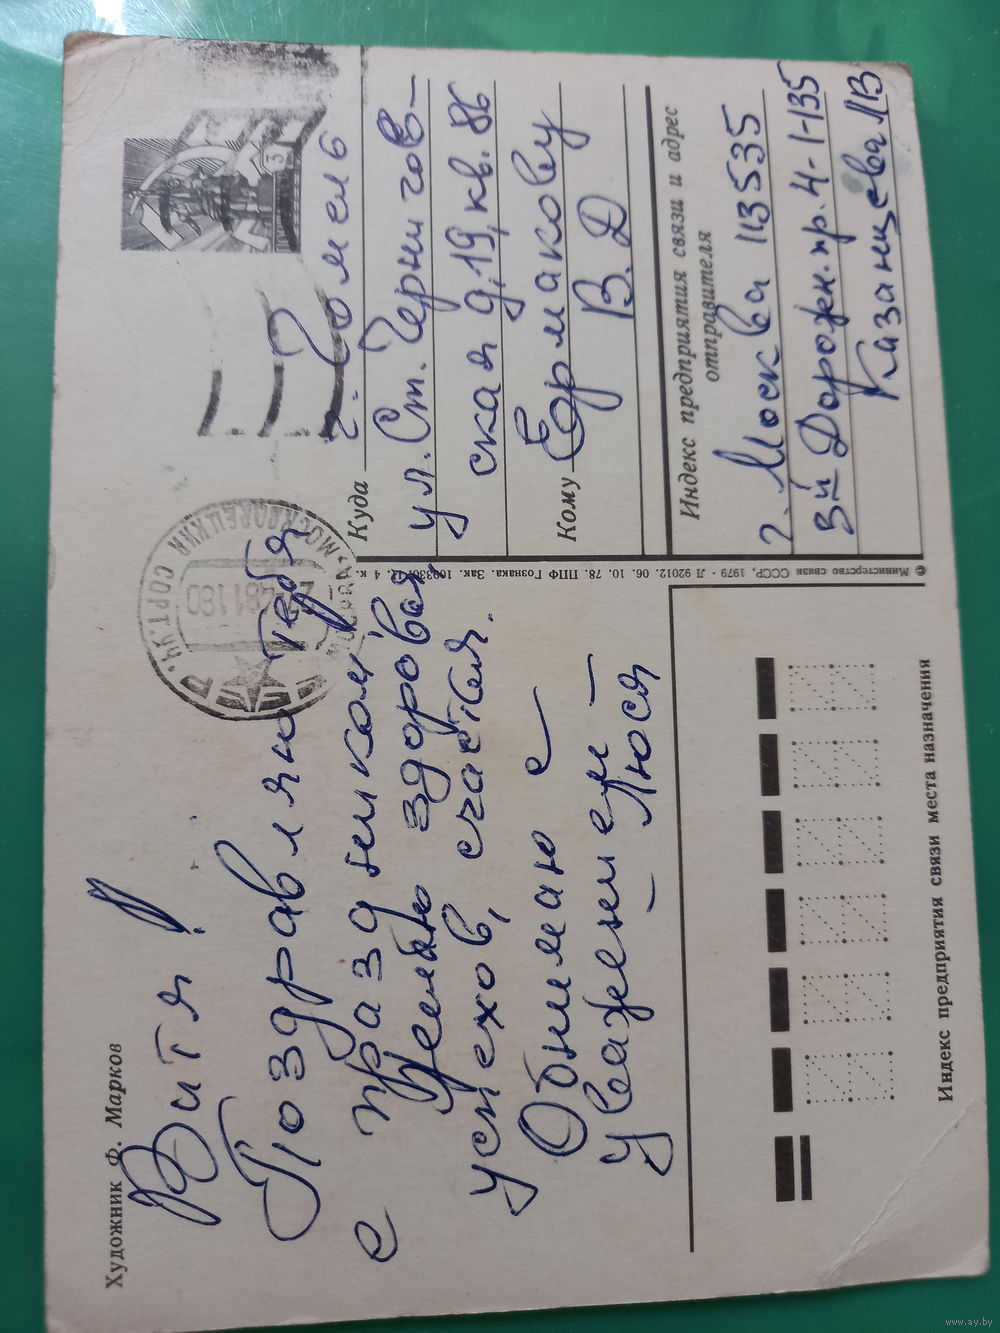 Художник Ф. Марков
Витя!
Поздравляю тебя
с праздником,
желаю здоровья,
успехов, счастья.
Обнимаю с
уважением –
– Люся
3
г. Гомель
Куда
ул. Ст. Чернигов-
ская д. 19, кв. 86
Кому Ермакову
В. Д
Индекс предприятия связи и адрес
отправителя
г. Москва 113535
3й Дорожн. пр. 4-1-135
Казанцева ЛВ
© Министерство связи СССР, 1979 · Л 92012. 06. 10. 78. ППФ Гознака. Зак. 4 к.
Индекс предприятия связи места назначения
www.ay.by